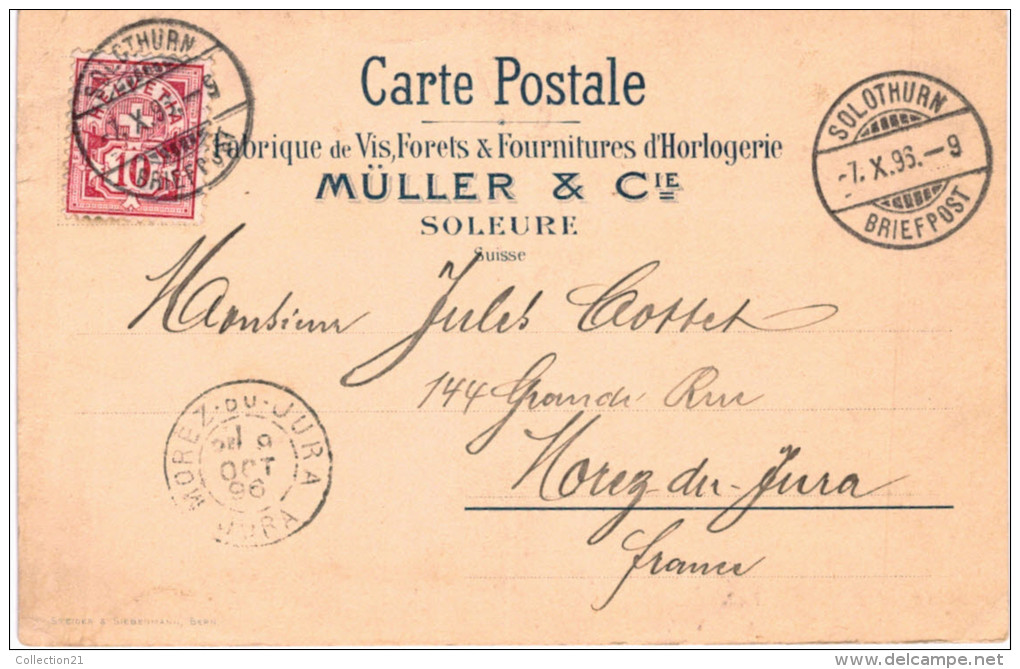 Carte Postale
Fabrique de Vis, Forets & Fournitures d'Horlogerie
MÜLLER & CIE
SOLEURE
Suisse
SOLOTHURN
BRIEFPOST
HELVETIA
10
SOLOTHURN
-7. X. 96. – 9
BRIEFPOST
Monsieur Jules Cottet
144 Grande Rue
Morez-du-Jura
France
MOREZ-DU-JURA
9
OCT
96
JURA
STEIGER & SIEBENMANN, BERN
Collection21
www.delcampe.net